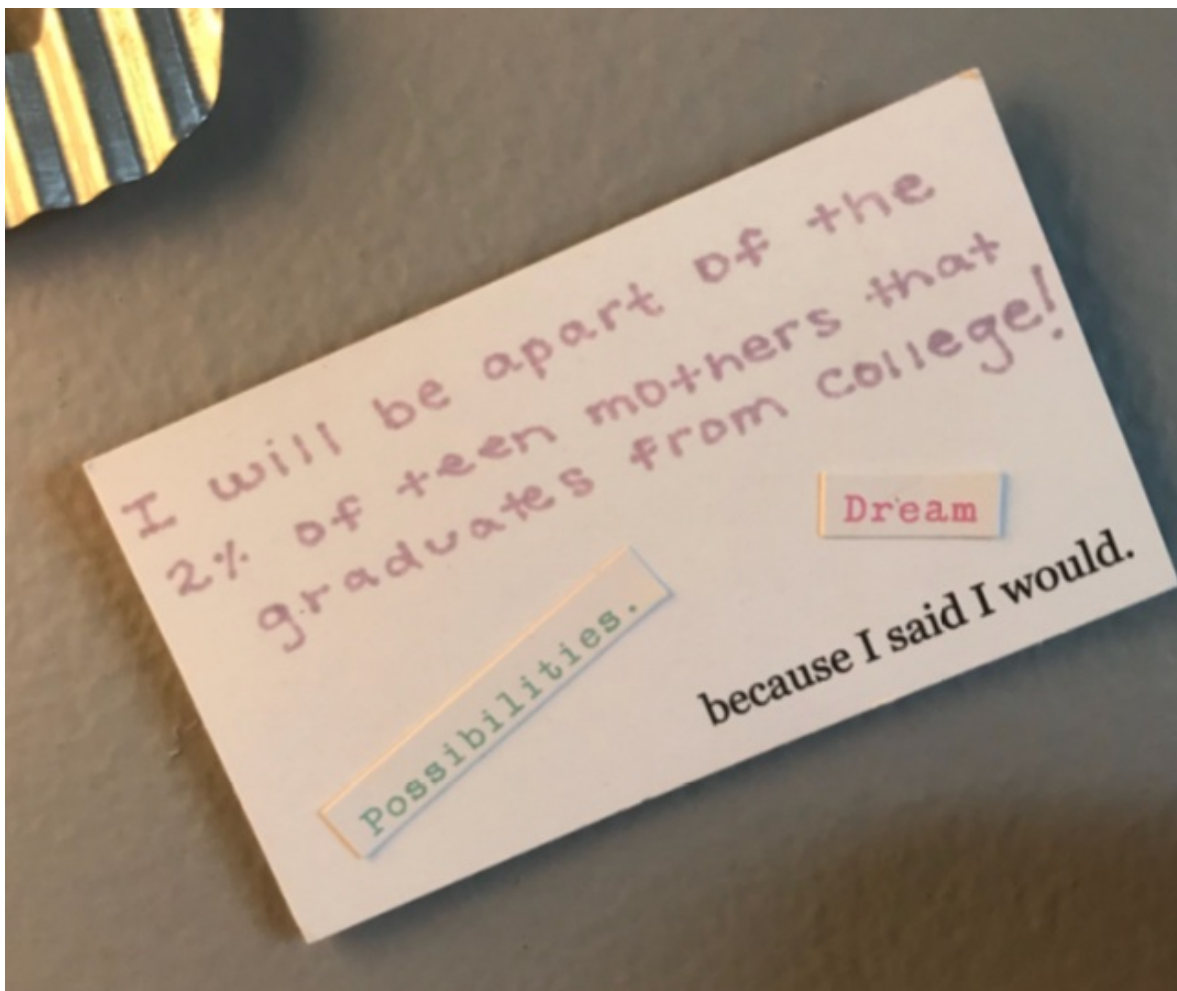 I will be apart of the
2% of teen mothers that
graduates from college!
Dream
Possibilities.
because I said I would.